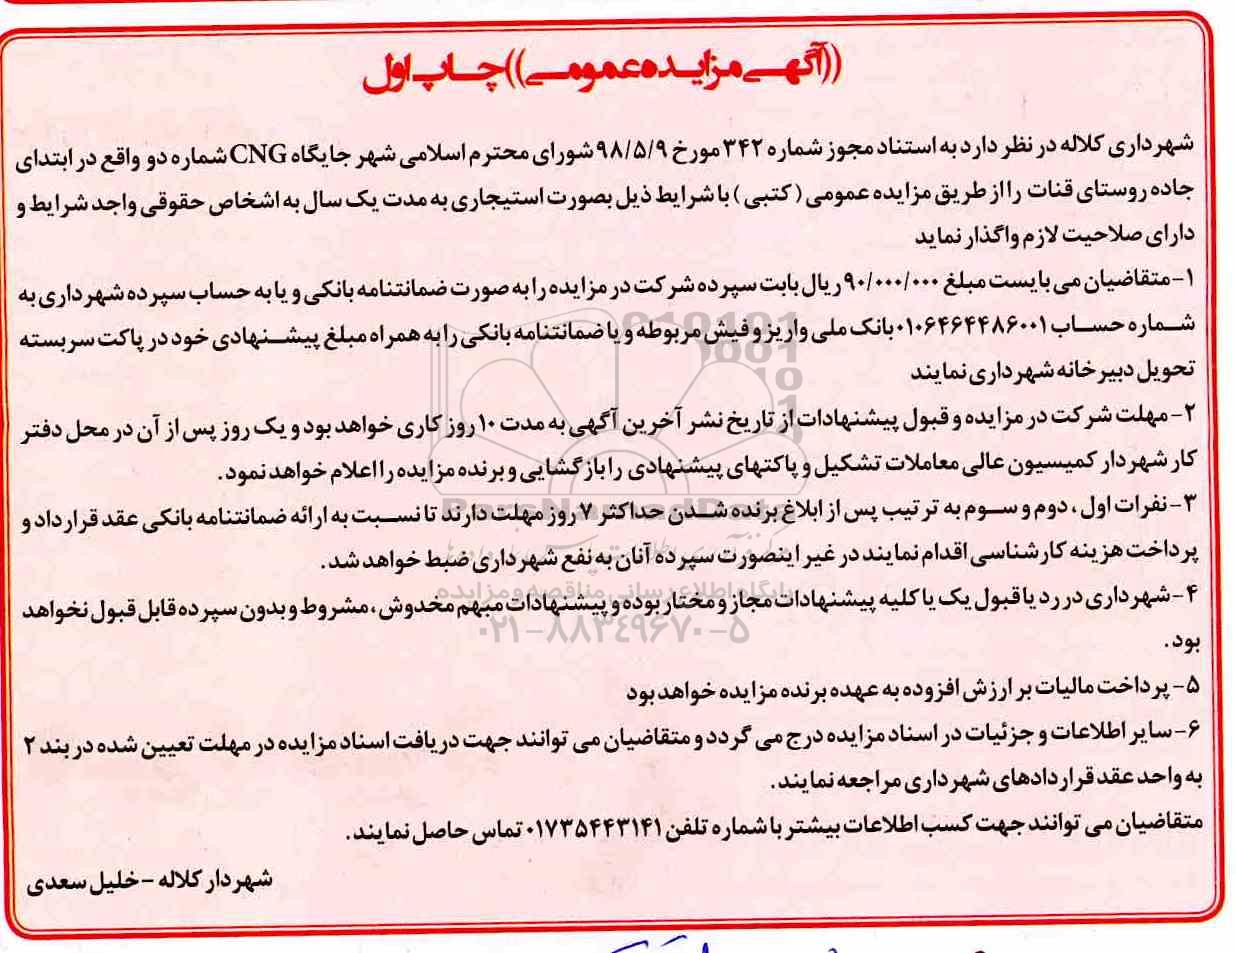 ((آگهی مزایده عمومی)) چاپ اول
شهرداری کلاله در نظر دارد به استناد مجوز شماره ۳۴۲ مورخ ۹۸/۵/۹ شورای محترم اسلامی شهر جایگاه CNG شماره دو واقع در ابتدای
جاده روستای قنات را از طریق مزایده عمومی ( کتبی ) با شرایط ذیل بصورت استیجاری به مدت یک سال به اشخاص حقوقی واجد شرایط و
دارای صلاحیت لازم واگذار نماید
۱- متقاضیان می بایست مبلغ ۹۰/۰۰۰/۰۰۰ ریال بابت سپرده شرکت در مزایده را به صورت ضمانتنامه بانکی و یا به حساب سپرده شهرداری به
شماره حساب ۰۱۰۶۴۶۴۴۸۶۰۰۱ بانک ملی واریز و فیش مربوطه و یا ضمانتنامه بانکی را به همراه مبلغ پیشنهادی خود در پاکت سربسته
تحویل دبیرخانه شهرداری نمایند
۲- مهلت شرکت در مزایده و قبول پیشنهادات از تاریخ نشر آخرین آگهی به مدت ۱۰ روز کاری خواهد بود و یک روز پس از آن در محل دفتر
کار شهردار کمیسیون عالی معاملات تشکیل و پاکتهای پیشنهادی را بازگشایی و برنده مزایده را اعلام خواهد نمود.
۳- نفرات اول ، دوم و سوم به ترتیب پس از ابلاغ برنده شدن حداکثر ۷ روز مهلت دارند تا نسبت به ارائه ضمانتنامه بانکی عقد قرارداد و
پرداخت هزینه کارشناسی اقدام نمایند در غیر اینصورت سپرده آنان به نفع شهرداری ضبط خواهد شد.
پایگاه اطلاع رسانی مناقصه و مزایده
۴- شهرداری در رد یا قبول یک یا کلیه پیشنهادات مجاز و مختار بوده و پیشنهادات مبهم مخدوش ، مشروط و بدون سپرده قابل قبول نخواهد
۰۲۱-۸۸۳۴۹۶۷۰-۵
بود .
۵- پرداخت مالیات بر ارزش افزوده به عهده برنده مزایده خواهد بود
۶- سایر اطلاعات و جزئیات در اسناد مزایده درج می گردد و متقاضیان می توانند جهت دریافت اسناد مزایده در مهلت تعیین شده در بند ۲
به واحد عقد قراردادهای شهرداری مراجعه نمایند.
متقاضیان می توانند جهت کسب اطلاعات بیشتر با شماره تلفن ۰۱۷۳۵۴۴۳۱۴۱ تماس حاصل نمایند.
شهردار کلاله - خلیل سعدی